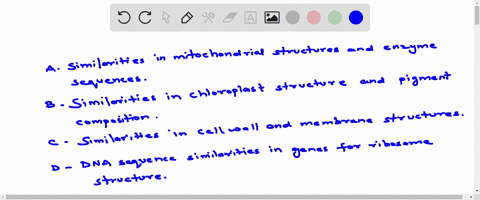 A. Similarities in mitochondrial structures and enzyme
sequences.
B - Similarities in chloroplast structure and pigment
composition.
C - Similarities in cell wall and membrane structures.
D - DNA sequence similarities in genes for ribosome
structure.